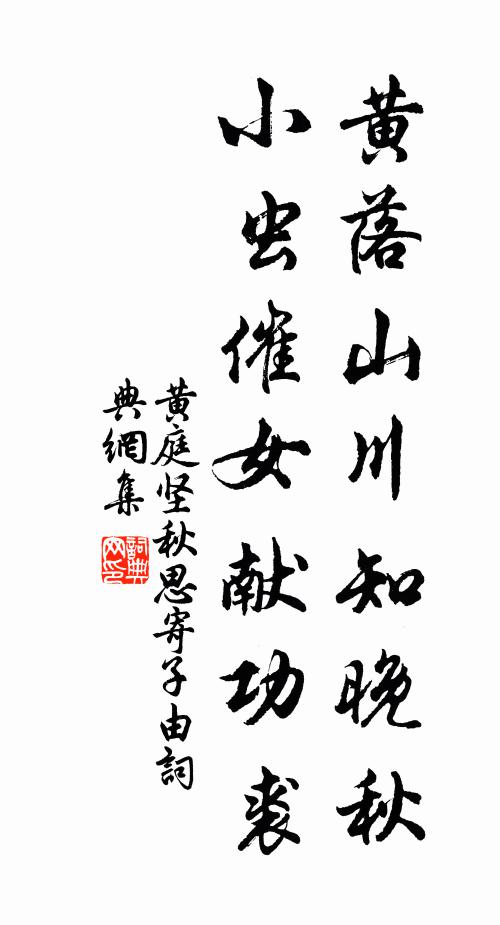 黄落山川知晚秋
小虫催女献功裘
黄庭坚秋思寄子由詞
典網集
詞典
网印